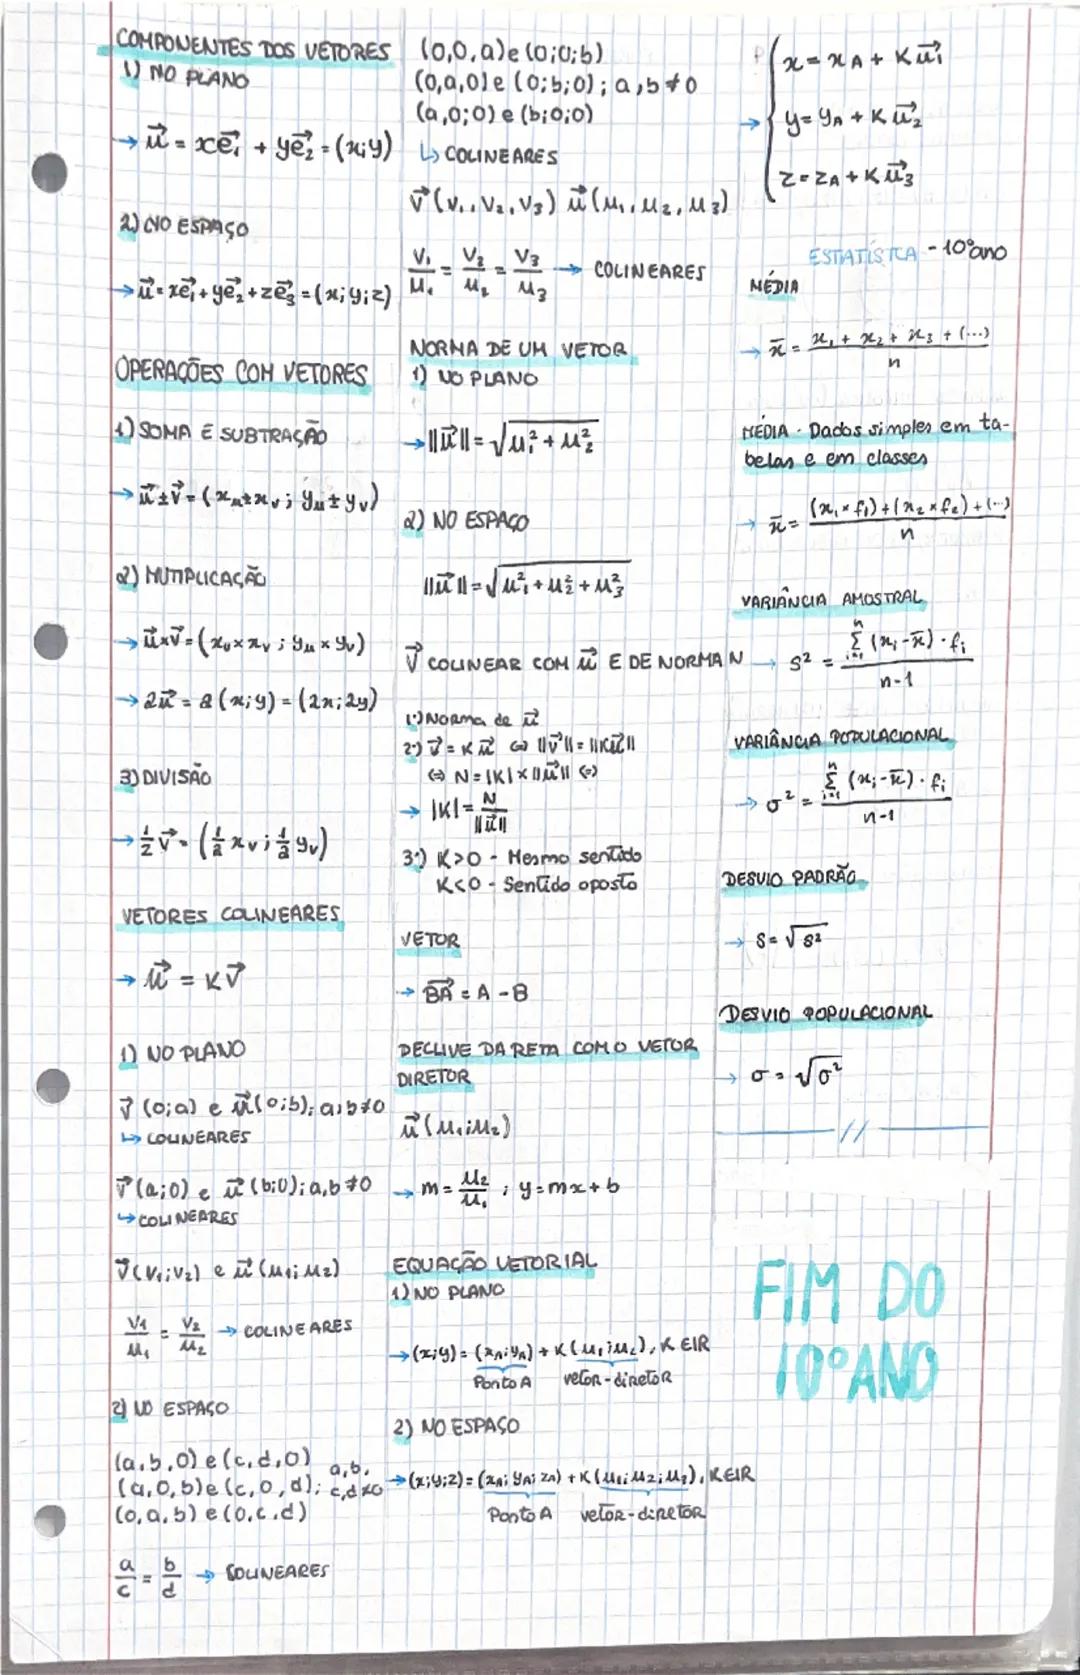 COMPONENTES DOS VETORES
1) NO PLANO
→ u⃗ = xe⃗₁ + ye⃗₂ = (x;y)
2) NO ESPAÇO
→ u⃗ = xe⃗₁ + ye⃗₂ + ze⃗₃ = (x;y;z)
OPERAÇÕES COM VETORES
1) SOMA E SUBTRAÇÃO
→ u⃗ ± v⃗ = (xᵤ ± xᵥ ; yᵤ ± yᵥ)
2) MUTIPLICAÇÃO
→ u⃗ × v⃗ = (xᵤ × xᵥ ; yᵤ × yᵥ)
→ 2u⃗ = 2(x;y) = (2x;2y)
3) DIVISÃO
→ 1/2 v⃗ = (1/2 xᵥ ; 1/2 yᵥ)
VETORES COLINEARES
→ u⃗ = Kv⃗
1) NO PLANO
v⃗ (0;a) e u⃗(0;b); a,b≠0
↳ COLINEARES
v⃗ (a;0) e u⃗ (b;0); a,b≠0
↳ COLINEARES
v⃗ (v₁;v₂) e u⃗ (u₁;u₂)
v₁/u₁ = v₂/u₂ → COLINEARES
2) NO ESPAÇO
(a,b,0) e (c,d,0)
(a,0,b) e (c,0,d); a,b,c,d≠0
(0,a,b) e (0,c,d)
a/c = b/d → COLINEARES
(0,0,a) e (0;0;b)
(0,a,0) e (0;b;0); a,b≠0
(a,0;0) e (b;0;0)
↳ COLINEARES
v⃗ (v₁,v₂,v₃) u⃗ (u₁,u₂,u₃)
v₁/u₁ = v₂/u₂ = v₃/u₃ → COLINEARES
NORMA DE UM VETOR
1) NO PLANO
→ ||u⃗|| = √(u₁² + u₂²)
2) NO ESPAÇO
||u⃗|| = √(u₁² + u₂² + u₃²)
v⃗ COLINEAR COM u⃗ E DE NORMA N
1º) Norma de u⃗
2º) v⃗ = Ku⃗ ⇔ ||v⃗|| = ||Ku⃗||
⇔ N = |K| × ||u⃗|| ⇔
→ |K| = N/||u⃗||
3º) K>0 - Mesmo sentido
K<0 - Sentido oposto
VETOR
→ BA⃗ = A - B
DECLIVE DA RETA COM O VETOR
DIRETOR
u⃗ (u₁;u₂)
→ m = u₂/u₁ ; y = mx + b
EQUAÇÃO VETORIAL
1) NO PLANO
→ (x;y) = (x_A;y_A) + K(u₁;u₂), K E IR
Ponto A vetor-diretor
2) NO ESPAÇO
→ (x;y;z) = (x_A; y_A; z_A) + K(u₁;u₂;u₃), K E IR
Ponto A vetor-diretor
x = x_A + Ku⃗₁
→ { y = y_A + Ku⃗₂
z = z_A + Ku⃗₃
ESTATÍSTICA - 10ºano
MÉDIA
→ x̄ = (x₁ + x₂ + x₃ + (...))/n
MÉDIA - Dados simples em ta-
belas e em classes
→ x̄ = ((x₁ × f₁) + (x₂ × f₂) + (...))/n
VARIÂNCIA AMOSTRAL
→ s² = (Σⁿᵢ₌₁ (xᵢ - x̄) · fᵢ)/(n-1)
VARIÂNCIA POPULACIONAL
→ σ² = (Σⁿᵢ₌₁ (xᵢ - x̄) · fᵢ)/(n-1)
DESVIO PADRÃO
→ s = √s²
DESVIO POPULACIONAL
→ σ = √σ²
FIM DO
10º ANO